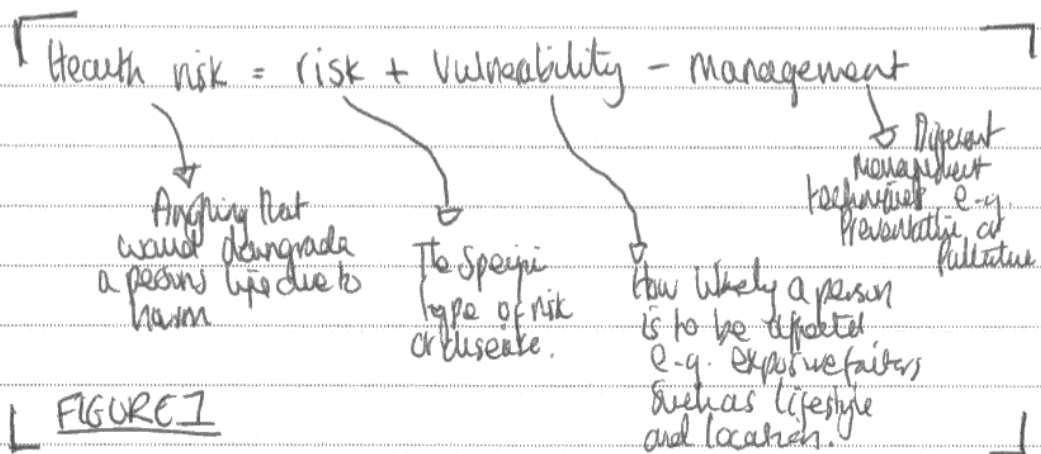 Health risk = risk + Vulnerability - Management
Anything that
would downgrade
a persons life due to
harm
The specific
type of risk
or disease.
How likely a person
is to be affected
e.g. exposure factors
such as lifestyle
and location.
Different
management
techniques e.g.
Preventative or
Palliative
FIGURE 1